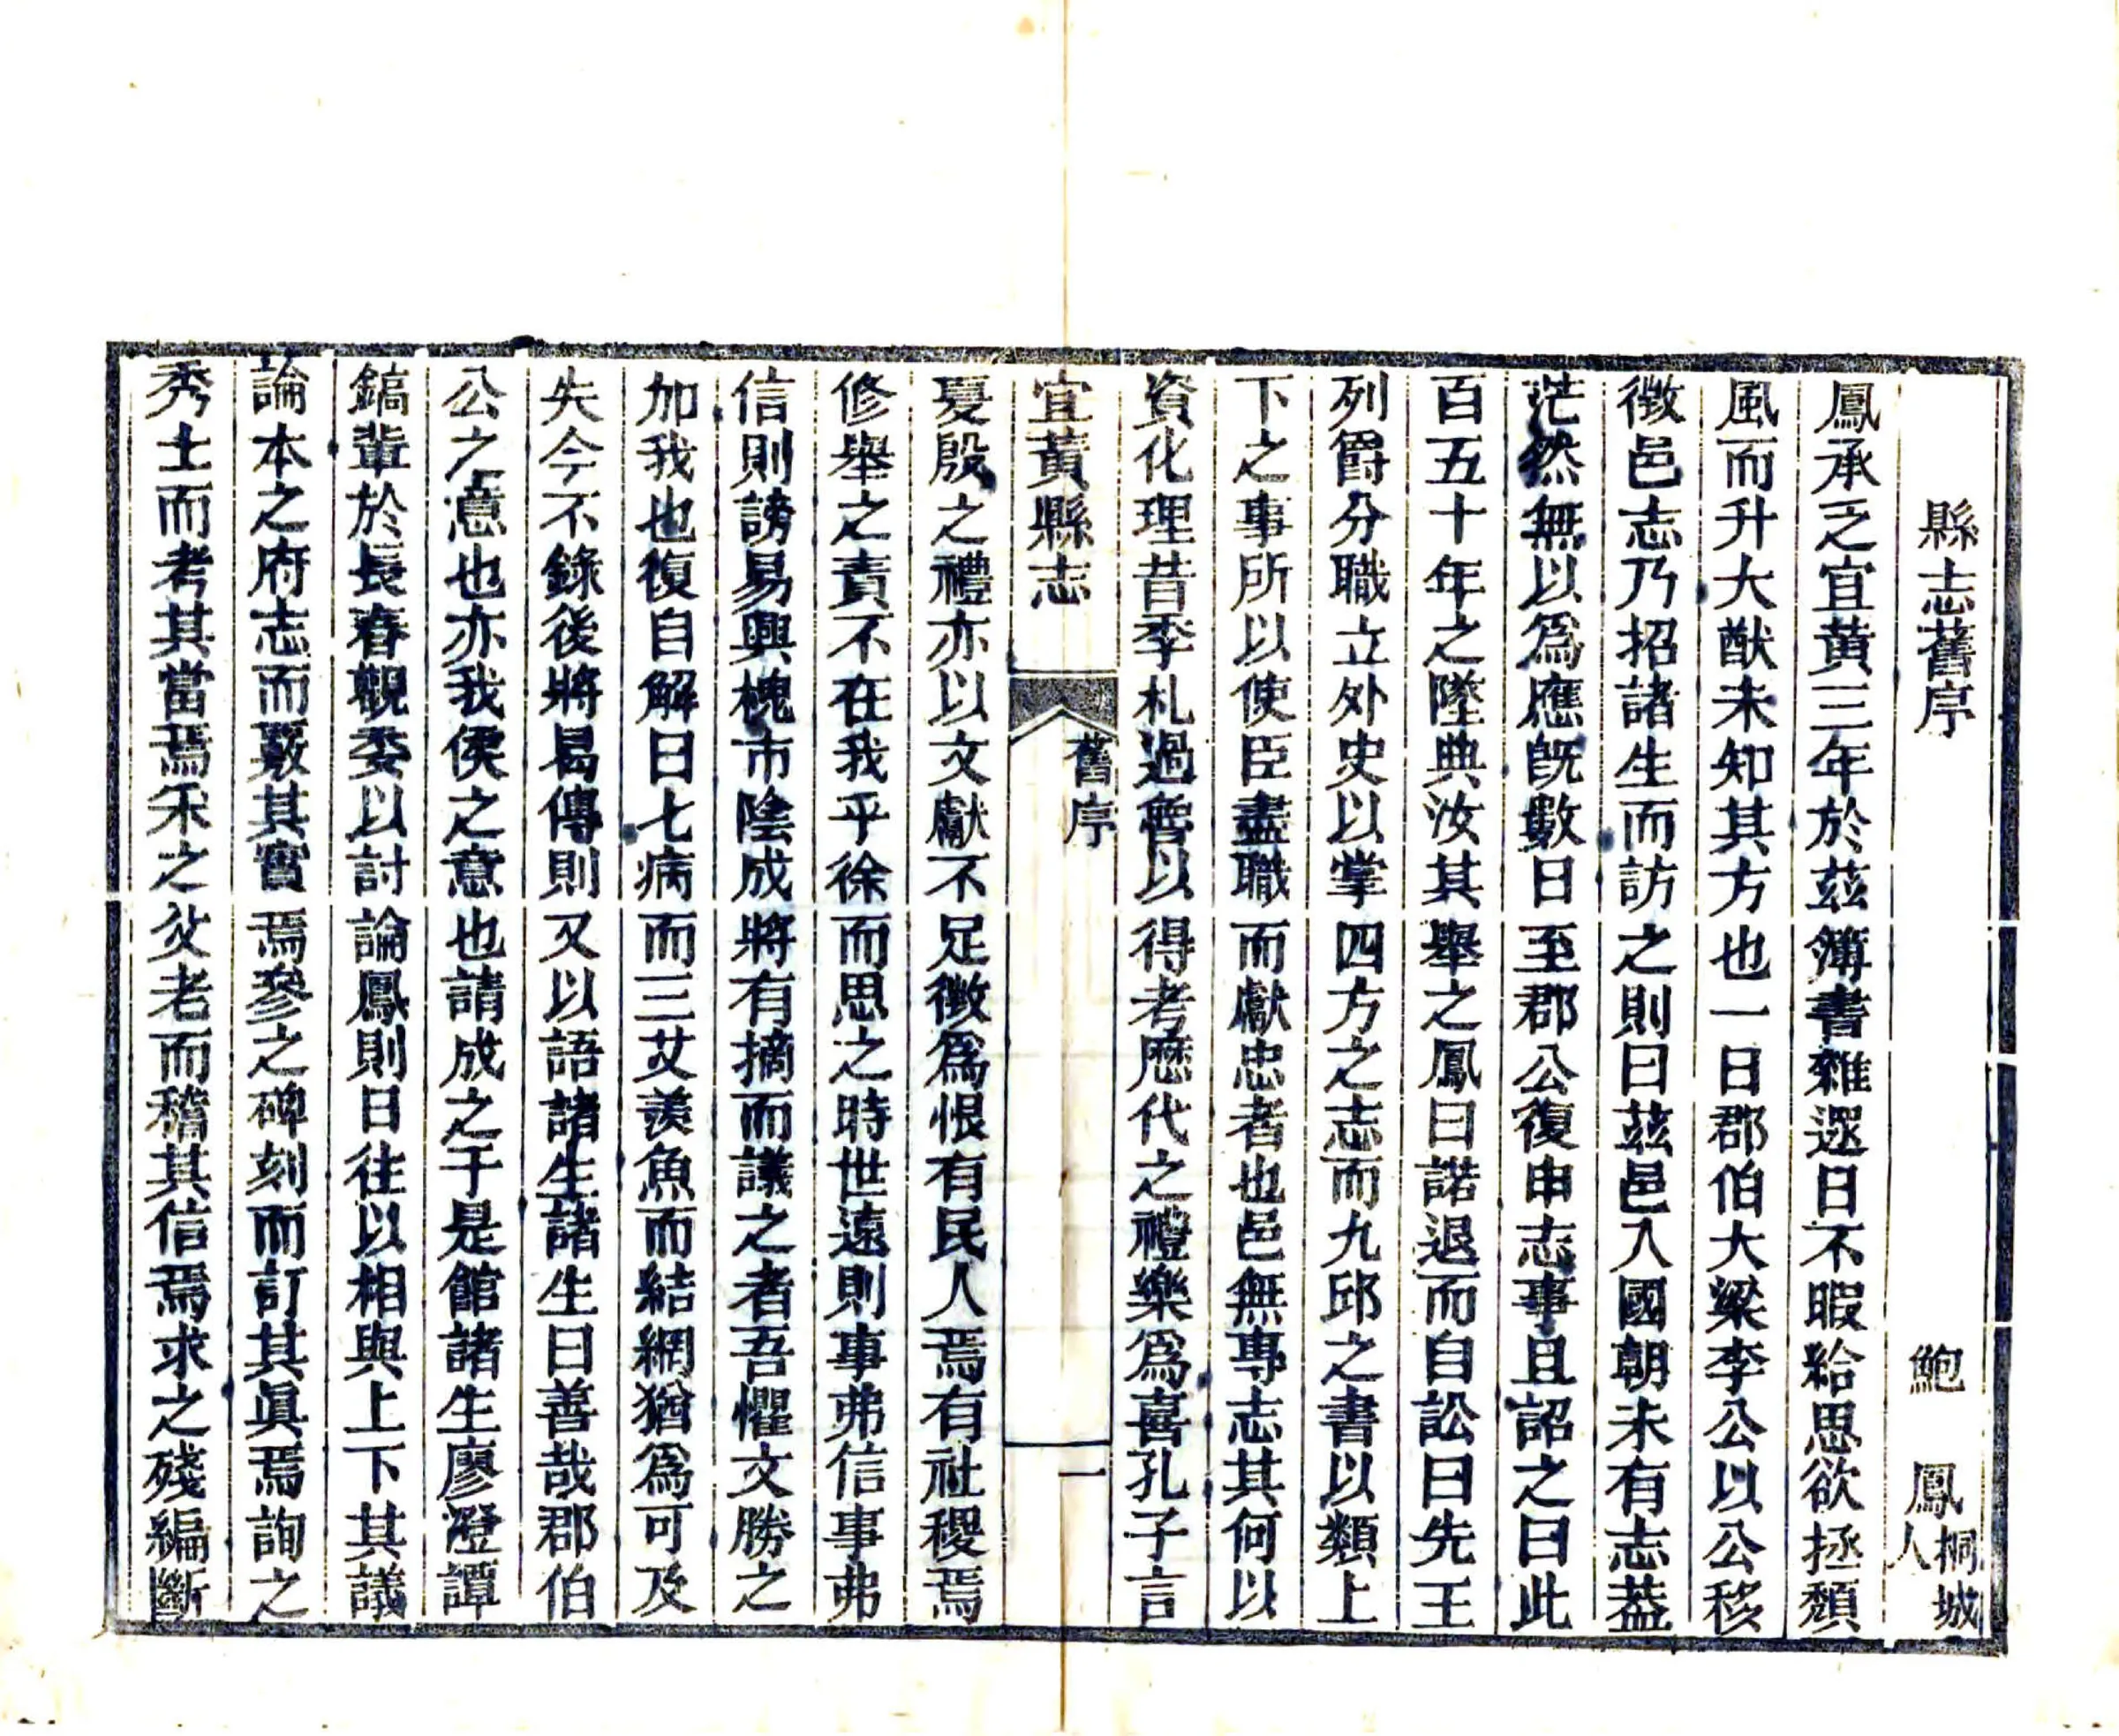 縣志舊序　鮑　鳳桐城人
鳳承乏宜黃三年於茲簿書雜遝日不暇給思欲拯頹
風而升大猷未知其方也一日郡伯大梁李公以公移
徵邑志乃招諸生而訪之則曰茲邑入國朝未有志蓋
茫然無以爲應旣數日至郡公復申志事且詔之曰此
百五十年之墜典汝其舉之鳳曰諾退而自訟曰先王
列爵分職立外史以掌四方之志而九邱之書以類上
下之事所以使臣盡職而獻忠者也邑無專志其何以
資化理昔季札過魯以得考歷代之禮樂爲喜孔子言
宜黃縣志　舊序　一
夏殷之禮亦以文獻不足徵爲恨有民人焉有社稷焉
修舉之責不在我乎徐而思之時世遠則事弗信事弗
信則謗易興槐市陰成將有摘而議之者吾懼文勝之
加我也復自解曰七病而三艾羨魚而結網猶爲可及
失今不錄後將曷傳則又以語諸生諸生曰善哉郡伯
公之意也亦我侯之意也請成之于是館諸生廖澄譚
鎬輩於長春觀委以討論鳳則日往以相與上下其議
論本之府志而覈其實焉參之碑刻而訂其眞焉詢之
秀士而考其當焉采之父老而稽其信焉求之殘編斷